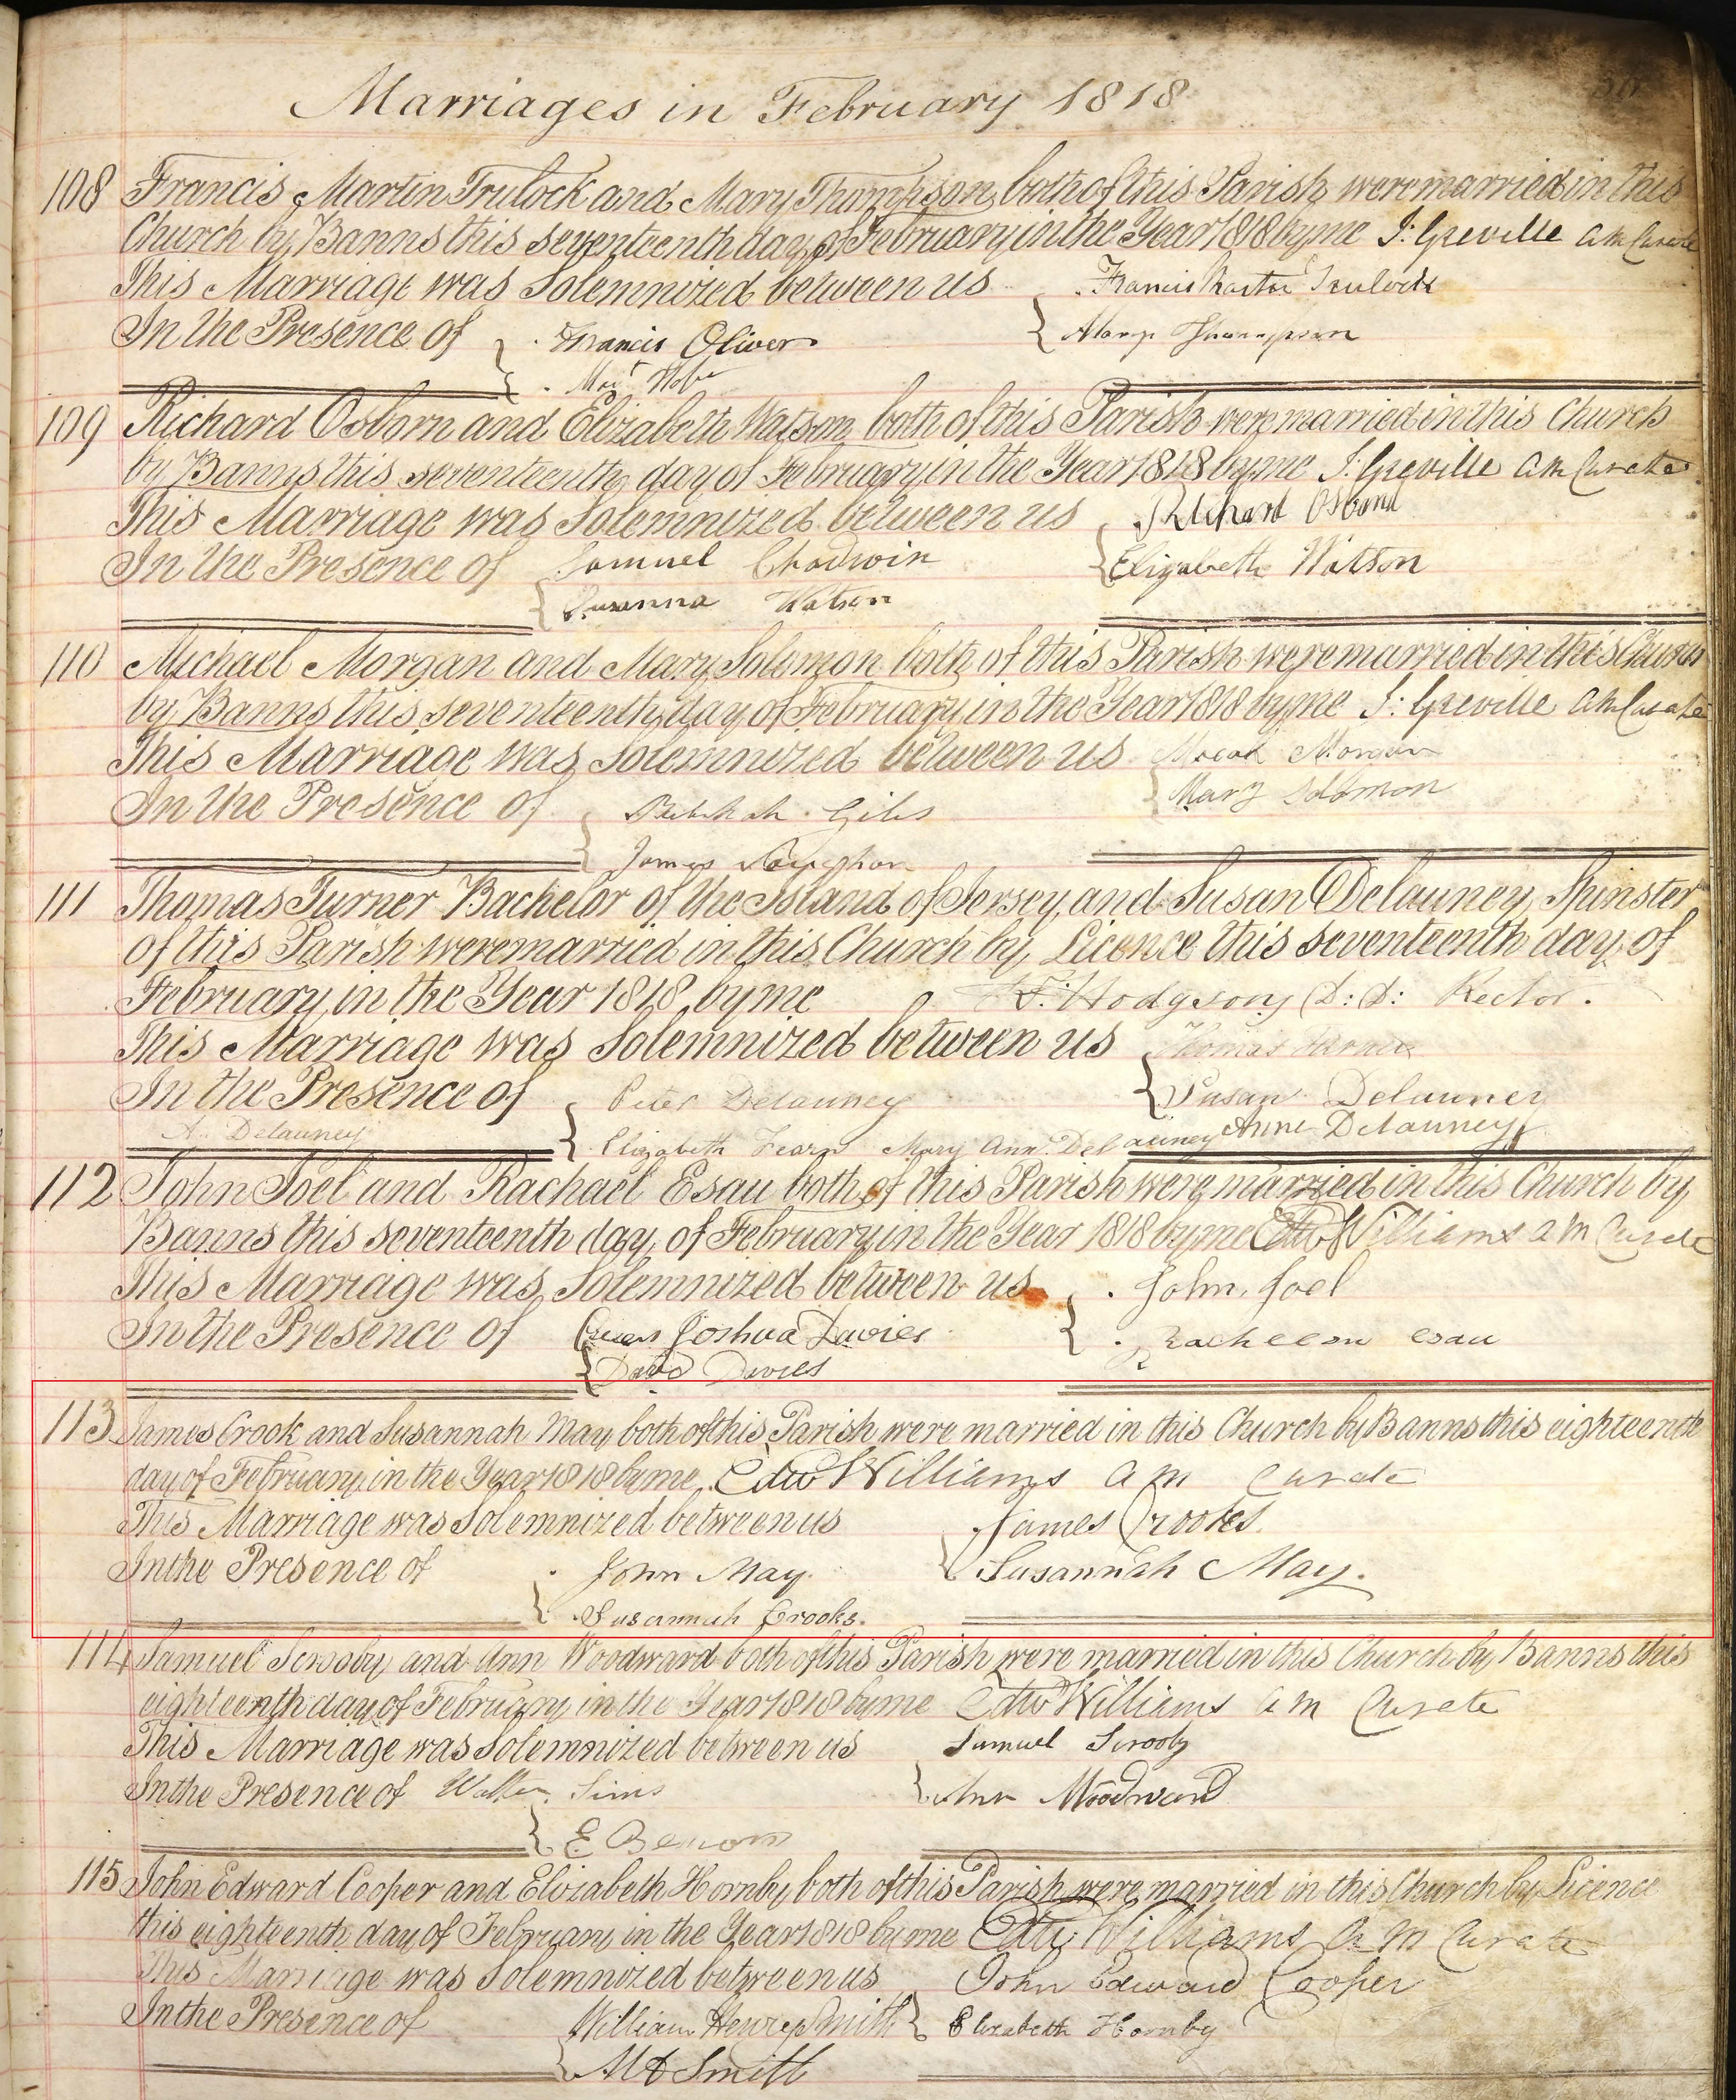 Marriages in February 1818
108 Francis Martin Trulock and Mary Thompson both of this Parish were married in this
Church by Banns this seventeenth day of February in the Year 1818 by me J: Greville A M Curate
This Marriage was Solemnized between us Francis Martin Trulock
In the Presence of Francis Oliver Mary Thompson
109 Richard Osborn and Elizabeth Watson both of this Parish were married in this Church
by Banns this seventeenth day of February in the Year 1818 by me J: Greville A M Curate
This Marriage was Solemnized between us Richard Osborn
In the Presence of Samuel Chadwin Elizabeth Watson
Susanna Watson
110 Michael Morgan and Mary Solomon both of this Parish were married in this Church
by Banns this seventeenth day of February in the Year 1818 by me J: Greville A M Curate
This Marriage was Solemnized between us Morgan
In the Presence of Giles Mary Solomon
James
111 Thomas Turner Bachelor of the Island of Jersey and Susan Delauney Spinster
of this Parish were married in this Church by Licence this seventeenth day of
February in the Year 1818 by me F: Hodgson D: D: Rector.
This Marriage was Solemnized between us Thomas Turner
In the Presence of Peter Delauney Susan Delauney
A. Delauney Elizabeth Fearn Mary Ann Delauney Anne Delauney
112 John Joel and Rachael Esau both of this Parish were married in this Church by
Banns this seventeenth day of February in the Year 1818 by me Edw Williams A M Curate
This Marriage was Solemnized between us John Joel
In the Presence of Joshua Davies esau
David Davies
113 James Crook and Susannah May both of this Parish were married in this Church by Banns this eighteenth
day of February in the Year 1818 by me Edw Williams A M Curate
This Marriage was Solemnized between us James Crookes
In the Presence of John May Susannah May.
Susannah Crooks.
114 Samuel Scrooby and Ann Woodward both of this Parish were married in this Church by Banns this
eighteenth day of February in the Year 1818 by me Edw Williams A M Curate
This Marriage was Solemnized between us Samuel Scrooby
In the Presence of Walter Sims Ann Woodward
E
115 John Edward Cooper and Elizabeth Hornby both of this Parish were married in this Church by Licence
this eighteenth day of February in the Year 1818 by me Edw Williams A M Curate
This Marriage was Solemnized between us John Edward Cooper
In the Presence of William Henry Smith Elizabeth Hornby
Smith